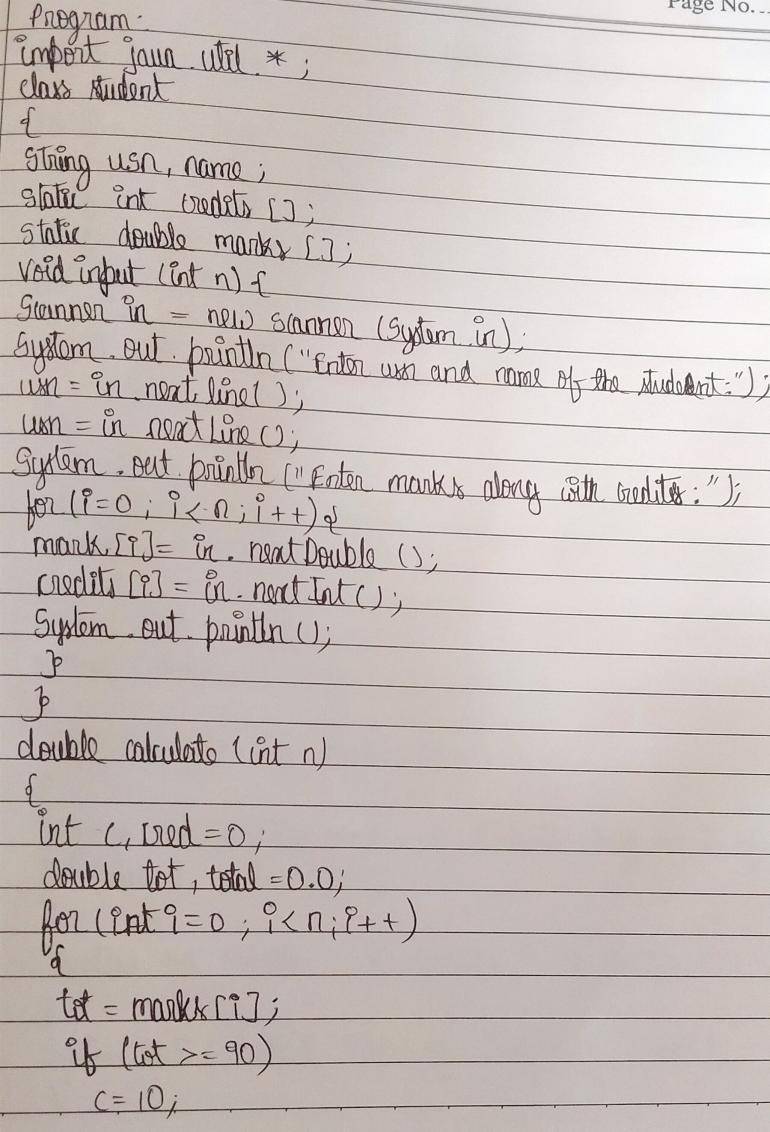 Page No...
Program:
import java.util.*;
class student
{
String usn, name;
static int credits [];
static double marks [];
void input (int n) {
Scanner in = new scanner (System.in);
System.out.println ("Enter usn and name of the student:");
usn = in.next line();
usn = in nextLine();
System.out.println ("Enter marks along with credits:");
for (i=0; i<n; i++) {
mark[i]= in.nextDouble ();
credits [i] = in.nextInt();
System.out.println ();
}
}
double calculate (int n)
{
int c, cred=0;
double tot, total=0.0;
for (int i=0; i<n; i++)
{
tot = marks[i];
if (tot >= 90)
c=10;